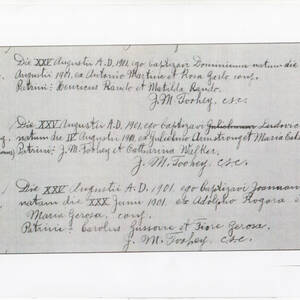 Die XXV Augustii A.D. 1901, ego baptizavi Dominicum natum die
Augustii 1901, ex Antonio Martino et Rosa conj.
Patrini: Henricus et Matilda
J. M. Toohey, c.s.c.
Die XXV Augustii A.D. 1901, ego baptizavi Gulielmum Ludovic
natum die IV Augustii 1901 ex Gulielmo Armstrong et Maria
Patrini: J. M. Toohey et Catharina Wilker.
J. M. Toohey, c.s.c.
Die XXV Augustii A.D. 1901. ego baptizavi Joannam
natam die XXX Junii 1901. ex Adolpho Rogora e
Maria Gerosa, conj.
Patrini: Carolus et Fiore Gerosa.
J. M. Toohey c.s.c.